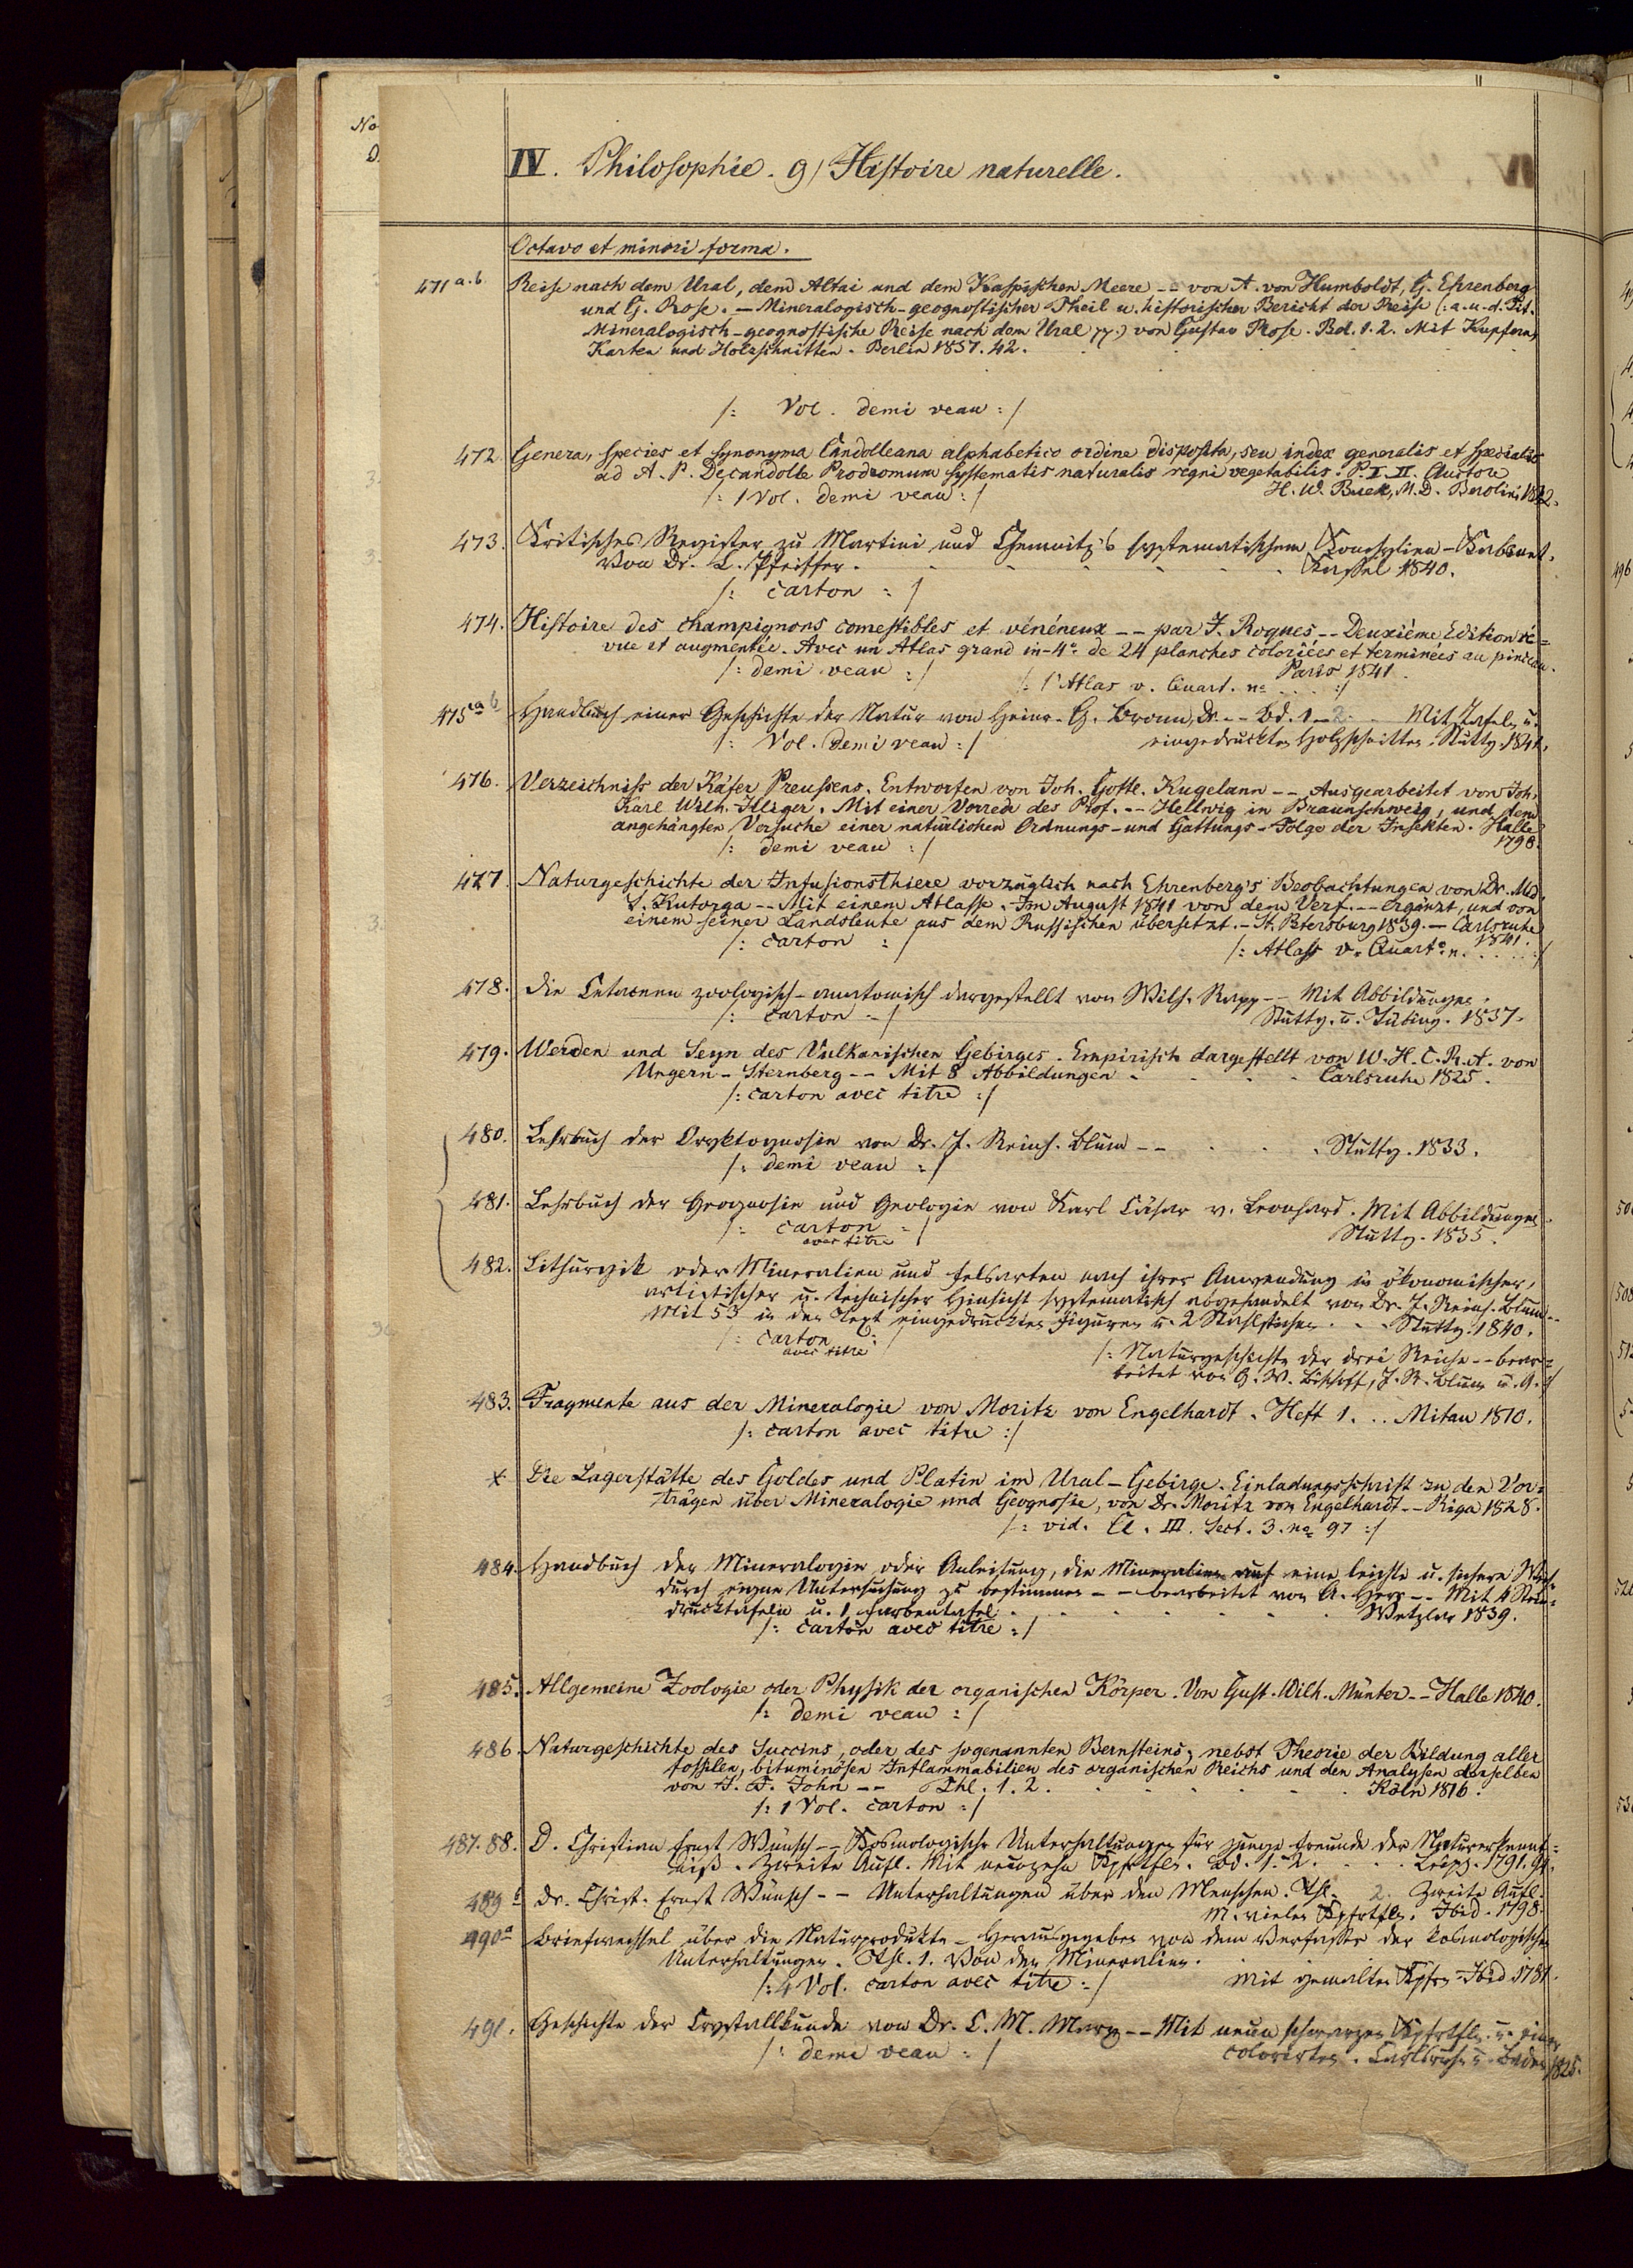 No
D.
IV. Philosophie. g) Histoire naturelle.
Octavo et minori forma.
471 a.b. Reise nach dem Ural, dem Altai und dem Kaspischen Meere -- von A. von Humboldt, G. Ehrenberg
und G. Rose. — Mineralogisch-geognostischer Theil u. historischer Bericht der Reise (: a. u. d. Tit.
Mineralogisch-geognostische Reise nach dem Ural pp.) von Gustav Rose. Bd. 1. 2. Mit Kupfern,
Karten und Holzschnitten. Berlin 1837. 42.
/: Vol. demi veau :/
472. Genera, species et synonyma Candolleana alphabetico ordine disposita, seu index generalis et specialis
ad A. P. Decandolle Prodromum systematis naturalis regni vegetabilis. P. I. II. Auctore
/: 1 Vol. demi veau :/ H. W. Buek, M. D. Berolini 1842.
473. Kritisches Register zu Martini und Chemnitz's systematischem Konchylien-Kabinet.
Von Dr. L. Pfeiffer. Kassel 1840.
/: carton :/
474. Histoire des champignons comestibles et vénéneux -- par J. Roques -- Deuxième Edition ré=
vue et augmentée. Avec un Atlas grand in-4° de 24 planches coloriées et terminées au pinceau.
/: demi veau :/ Paris 1841.
/: l'Atlas v. Quart. n° . . . :/
475 a b Handbuch einer Geschichte der Natur von Heinr. G. Bronn, Dr. -- Bd. 1-2. Mit Tafeln u.
/: Vol. demi veau :/ eingedruckten Holzschnitten. Stuttg. 1841.
476. Verzeichniss der Käfer Preussens. Entworfen von Joh. Gottl. Kugelann -- Ausgearbeitet von Joh.
Karl Wilh. Illiger. Mit einer Vorrede des Prof. -- Hellwig in Braunschweig, und dem
angehängten Versuche einer natürlichen Ordnungs- und Gattungs-Folge der Insekten. Halle
/: demi veau :/ 1798.
477. Naturgeschichte der Infusionsthiere vorzüglich nach Ehrenberg's Beobachtungen von Dr. Md.
S. Kutorga -- Mit einem Atlasse. Im August 1841 von dem Verf. -- ergänzt, und von
einem seiner Landsleute aus dem Russischen übersetzt. - St. Petersburg 1839. — Carlsruhe
/: carton :/ 1841.
/: Atlass v. Quart° n. . . . . :/
478. Die Cetaceen zoologisch-anatomisch dargestellt von Wilh. Rapp -- Mit Abbildungen.
/: carton :/ Stuttg. u. Tübing. 1837.
479. Werden und Seyn des Vulkanischen Gebirges. Empirisch dargestellt von W. H. C. R. A. von
Ungern-Sternberg -- Mit 8 Abbildungen Carlsruhe 1825.
/: carton avec titre :/
480. Lehrbuch der Oryktognosie von Dr. J. Reinh. Blum -- Stuttg. 1833.
/: demi veau :/
481. Lehrbuch der Geognosie und Geologie von Karl Cäsar v. Leonhard. Mit Abbildungen.
/: carton :/ Stuttg. 1835.
avec titre
482. Lithurgik oder Mineralien und Felsarten nach ihrer Anwendung in ökonomischer,
artistischer u. technischer Hinsicht systematisch abgehandelt von Dr. J. Reinh. Blum --
Mit 53 in den Text eingedruckten Figuren u. 2 Stahlstichen . . . Stuttg. 1840.
/: carton :/
avec titre /: Naturgeschichte der drei Reiche -- bear=
beitet von G. W. Bischoff, J. R. Blum u. A. :/
483. Fragmente aus der Mineralogie von Moritz von Engelhardt. Heft 1. . . Mitau 1810.
/: carton avec titre :/
x Die Lagerstätte des Goldes und Platin im Ural-Gebirge. Einladungsschrift zu den Vor=
trägen über Mineralogie und Geognosie, von Dr. Moritz von Engelhardt -- Riga 1828.
/: vid. Cl. III. Sect. 3. n° 97 :/
484. Handbuch der Mineralogie oder Anleitung, die Mineralien auf eine leichte u. sichere Weise
durch eigne Untersuchung zu bestimmen -- bearbeitet von A. Herr -- Mit 4 Stein=
drucktafeln u. 1 Farbentafel Wetzlar 1839.
/: carton avec titre :/
485. Allgemeine Zoologie oder Physik der organischen Körper. Von Gust. Wilh. Münter -- Halle 1840.
/: demi veau :/
486. Naturgeschichte des Succins, oder des sogenannten Bernsteins, nebst Theorie der Bildung aller
fossilen, bituminösen Inflammabilien des organischen Reichs und den Analysen derselben
von J. F. John -- Thl. 1. 2. Köln 1816.
/: 1 Vol. carton :/
487. 88. D. Christian Ernst Wünsch -- Kosmologische Unterhaltungen für junge Freunde der Naturerkennt=
niß. Zweite Aufl. Mit neunzehn Kpfrtfln. Bd. 1. 2. Leipz. 1791. 94.
489 Dr. Christ. Ernst Wünsch -- Unterhaltungen über den Menschen. Thl. 2. Zweite Aufl.
M. vielen Kpfrtfln. Ibid. 1798.
490a Briefwechsel über die Naturprodukte - Herausgegeben von dem Verfasser der kosmologischen
Unterhaltungen. Thl. 1. Von den Mineralien.
/: 4 Vol. carton avec titre :/ Mit gemalten Kpfrn - Ibid 1781.
491. Geschichte der Crystallkunde von Dr. C. M. Marx -- Mit neun schwarzen Kpfrtfln. u. einer
/: demi veau :/ colorirten. Carlsruhe u. Baden 1825.